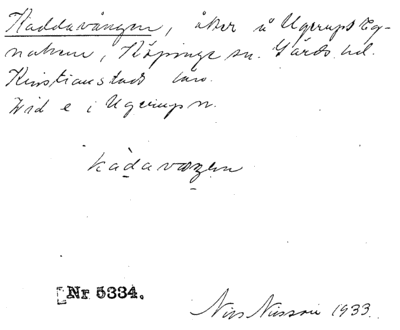 Kaddavången, åker å Ugerups Eg-
nahem, Köpinge sn. Gärds hd.
Kristianstads län.
Vid e i Ugerup n.
kadavæŋen
[Nr 5334.
Nils Nilsson 1933.